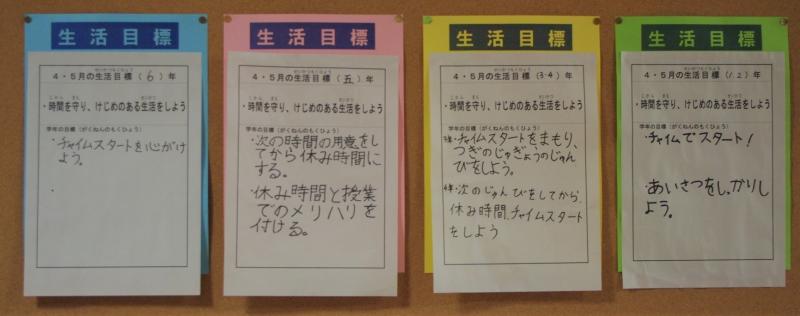 生活目標
4・5月の生活目標（6）年
・時間を守り、けじめのある生活をしよう
学年の目標（がくねんのもくひょう）
・チャイムスタートを心がけ
よう。
・
生活目標
4・5月の生活目標（五）年
・時間を守り、けじめのある生活をしよう
学年の目標（がくねんのもくひょう）
・次の時間の用意をし
てから休み時間に
する。
・休み時間と授業
でのメリハリを
付ける。
生活目標
4・5月の生活目標（3・4）年
・時間を守り、けじめのある生活をしよう
学年の目標（がくねんのもくひょう）
・チャイムスタートをまもり、
つぎのじゅぎょうのじゅん
びをしよう。
・次のじゅんびをしてから、
休み時間、チャイムスタート
をしよう
生活目標
4・5月の生活目標（1.2）年
・時間を守り、けじめのある生活をしよう
学年の目標（がくねんのもくひょう）
・チャイムでスタート！
・あいさつをしっかりし
よう。